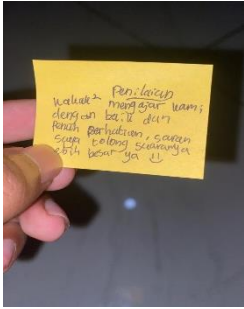 Penilaian
kakak² mengajar kami
dengan baik dan
penuh perhatian, saran
saya tolong suaranya
lebih besar ya